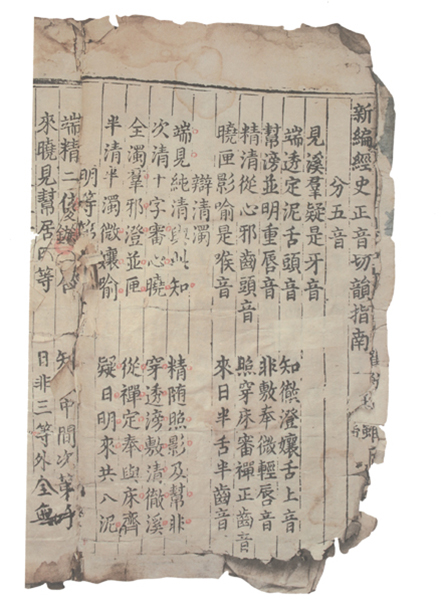 新編經史正音切韻指南
分五音
見溪羣疑是牙音
端透定泥舌頭音 知徹澄孃舌上音
幫滂並明重唇音 非敷奉微輕唇音
精清從心邪齒頭音 照穿床審禪正齒音
曉匣影喻是喉音 來日半舌半齒音
辯清濁
端見純清與此知 精随照影及幫非
次清十字審心曉 穿透滂敷清徹溪
全濁羣邪澄並匣 從禪定奉與床齊
半清半濁微孃喻 疑日明來共八泥
明等第
端精二 中間次第呼
來曉見幫居四等 日非三等外全無